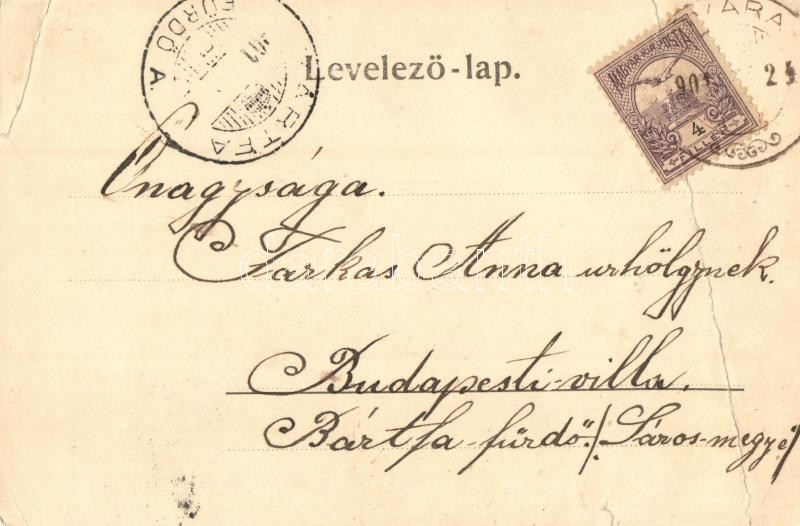 FÜRDŐ A
Levelező-lap.
MAGYAR KIR. POSTA
4
FILLÉR
Önagysága.
Farkas Anna urhölgynek.
Budapesti-villa.
Bártfa-fürdő. /Sáros-megye/